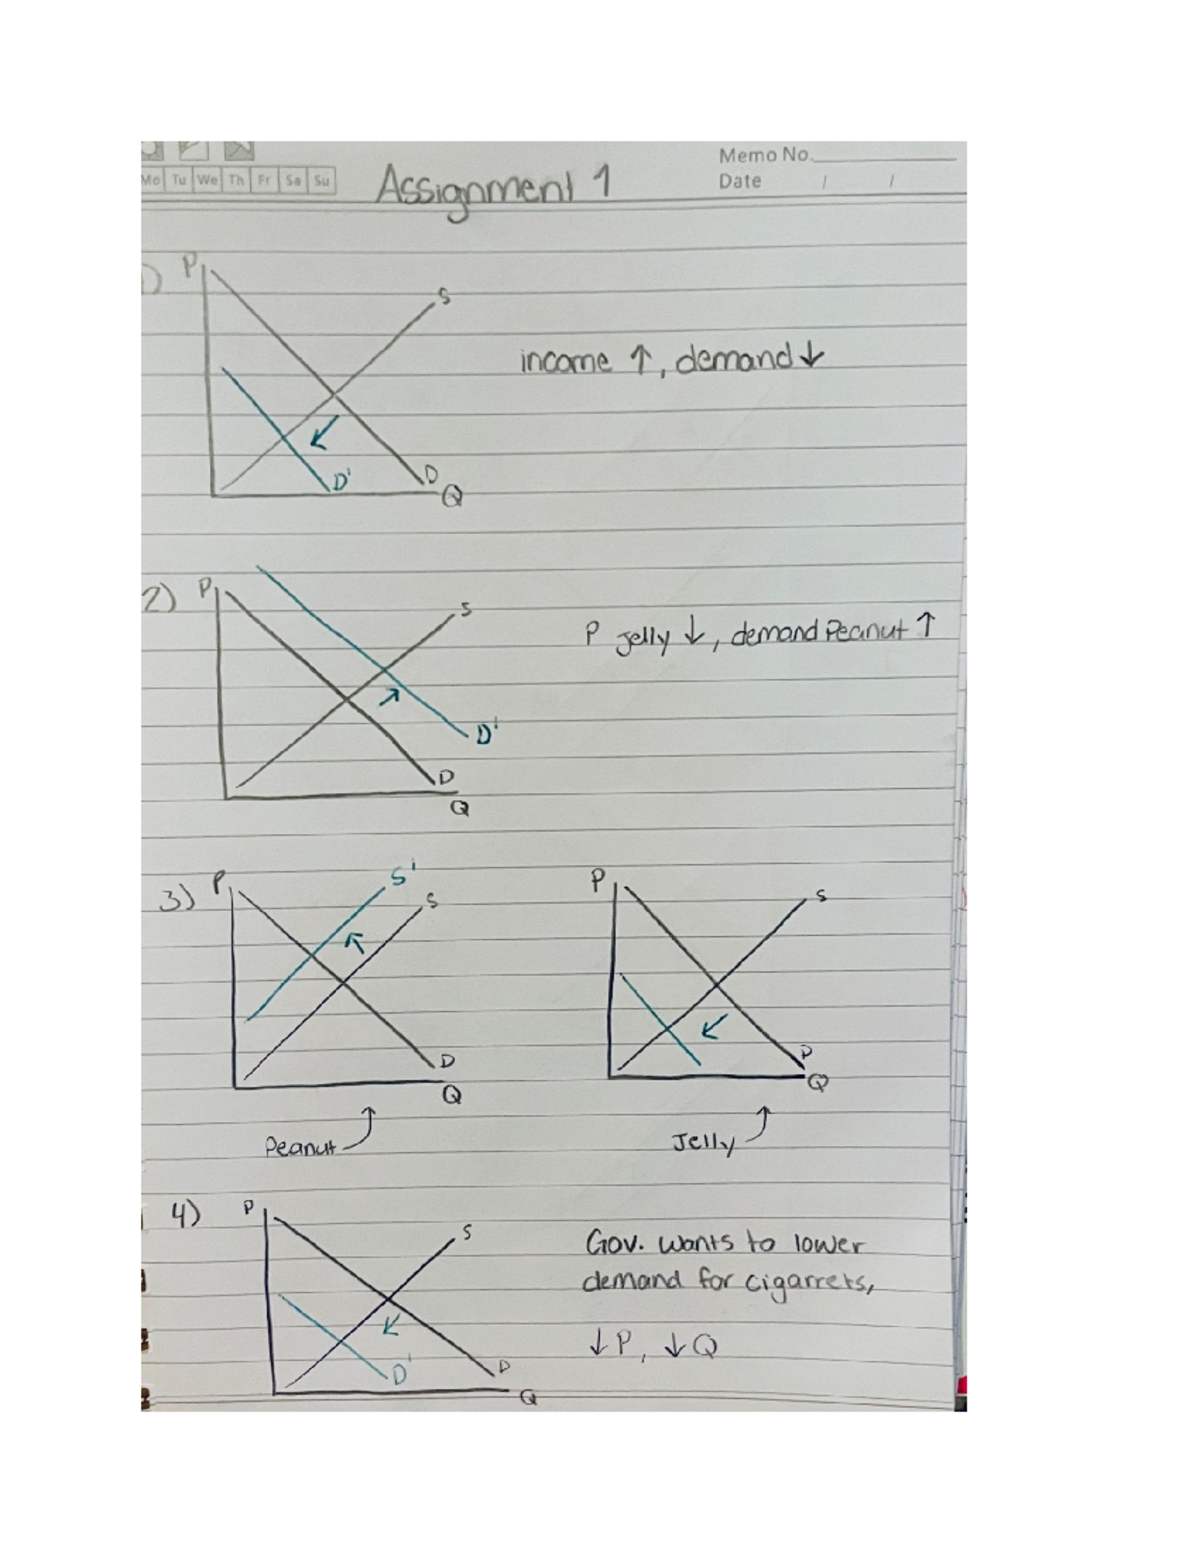 Memo No.
Mo Tu We Th Fr Sa Su
Assignment 1
Date / /
1)
P
S
income ↑, demand ↓
D'
D
Q
2)
P
S
P Jelly ↓, demand Peanut ↑
D'
D
Q
3)
P
S'
S
D
Q
Peanut
P
S
P
Q
Jelly
4)
P
S
Gov. wants to lower
demand for cigarrets,
↓P, ↓Q
D'
D
Q